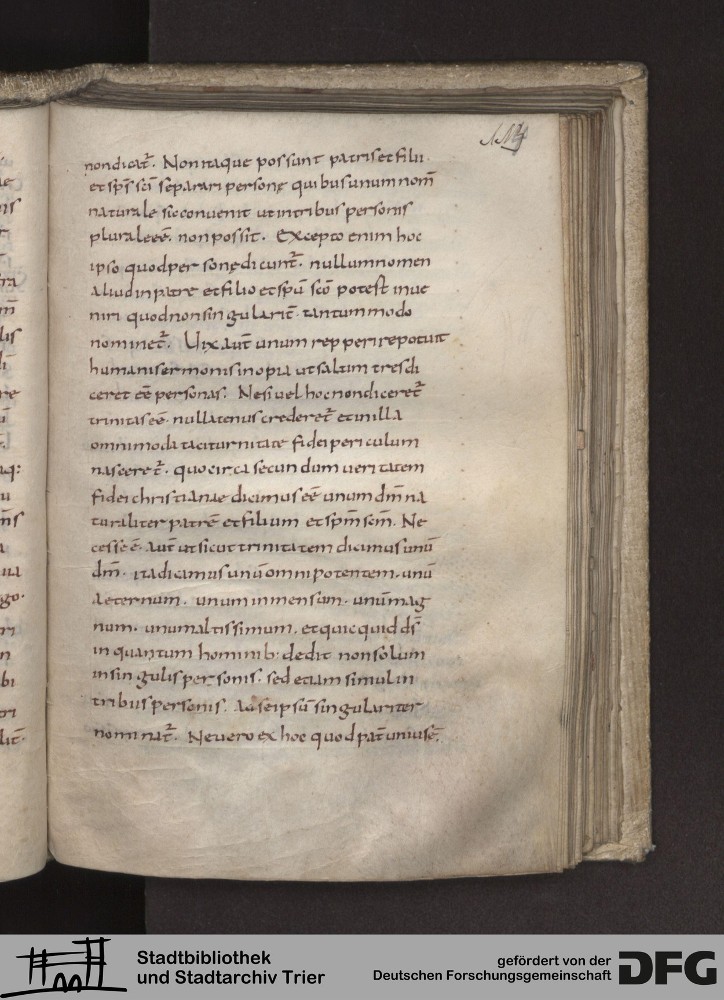 nondicat̄. Non itaque possunt patris et filii
et sp̄s sc̄i separari personę quibus unum nom̄
naturale sic conuenit ut in tribus personis
plurale eē. non possit. Excepto enim hoc
ipso quod per sonę dicunt̄. nullum nomen
aliud in patre et filio et sp̄u sc̄o potest inue
niri quod non singularit̄. tantum modo
nominet̄. Uix aut̄ unum repperire potuit
humani sermonis inopia ut saltim tres di
ceret eē personas. Ne si uel hoc non diceret̄
trinitas eē. nullatenus crederet̄ et in illa
omnimoda taciturnitate fidei periculum
nasceret̄. quo circa secundum ueritatem
fidei christianae dicimus eē unum dm̄ na
turaliter patrē et filium et spm̄ scm̄. Ne
cesse ē. aut̄ ut sicut trinitatem dicimus unū
dm̄. ita dicamus unū omnipotentem. unū
aeternum. unum inmensum. unū mag
num. unum altissimum. et quicquid ds̄
in quantum hominib; dedit non solum
in singulis personis. sed etiam simul in
tribus personis. Ad se ipsū singulariter
nominat̄. Ne uero ex hoc quod pat̄ unius ē.
Stadtbibliothek
und Stadtarchiv Trier
gefördert von der
Deutschen Forschungsgemeinschaft
DFG